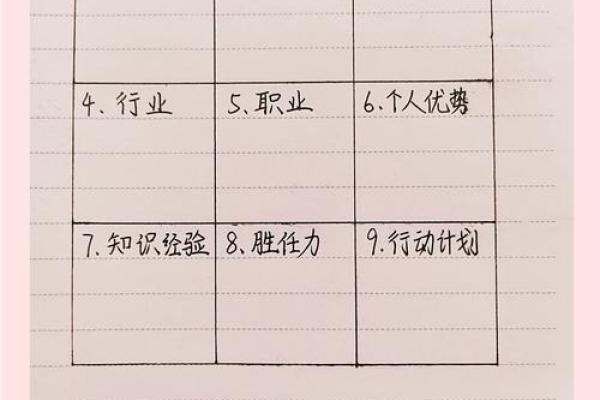 4、行业 5、职业 6、个人优势
7、知识经验 8、胜任力 9、行动计划